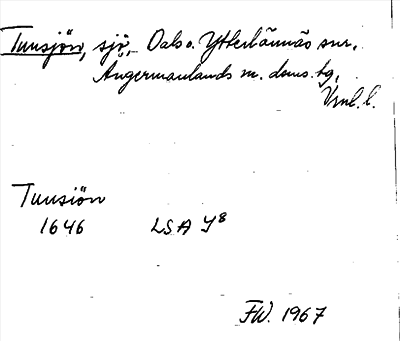 Tunsjön, sjö, Dals o. Ytterlännäs snr.
Ångermanlands m. doms. tg,
Vnl. l.
Tunsiön
1646 LSA Y8
FW. 1967